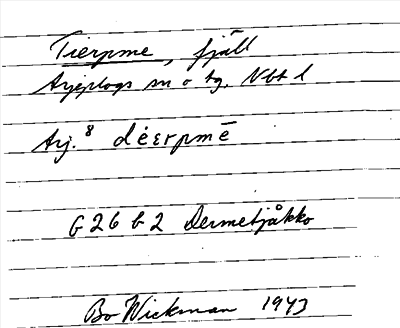 Tierpme, fjäll
Arjeplogs sn o tg, Vbt l
Arj.⁸ dėɛrpmē
G 26 b 2 Dermetjåkko
Bo Wickman 1943